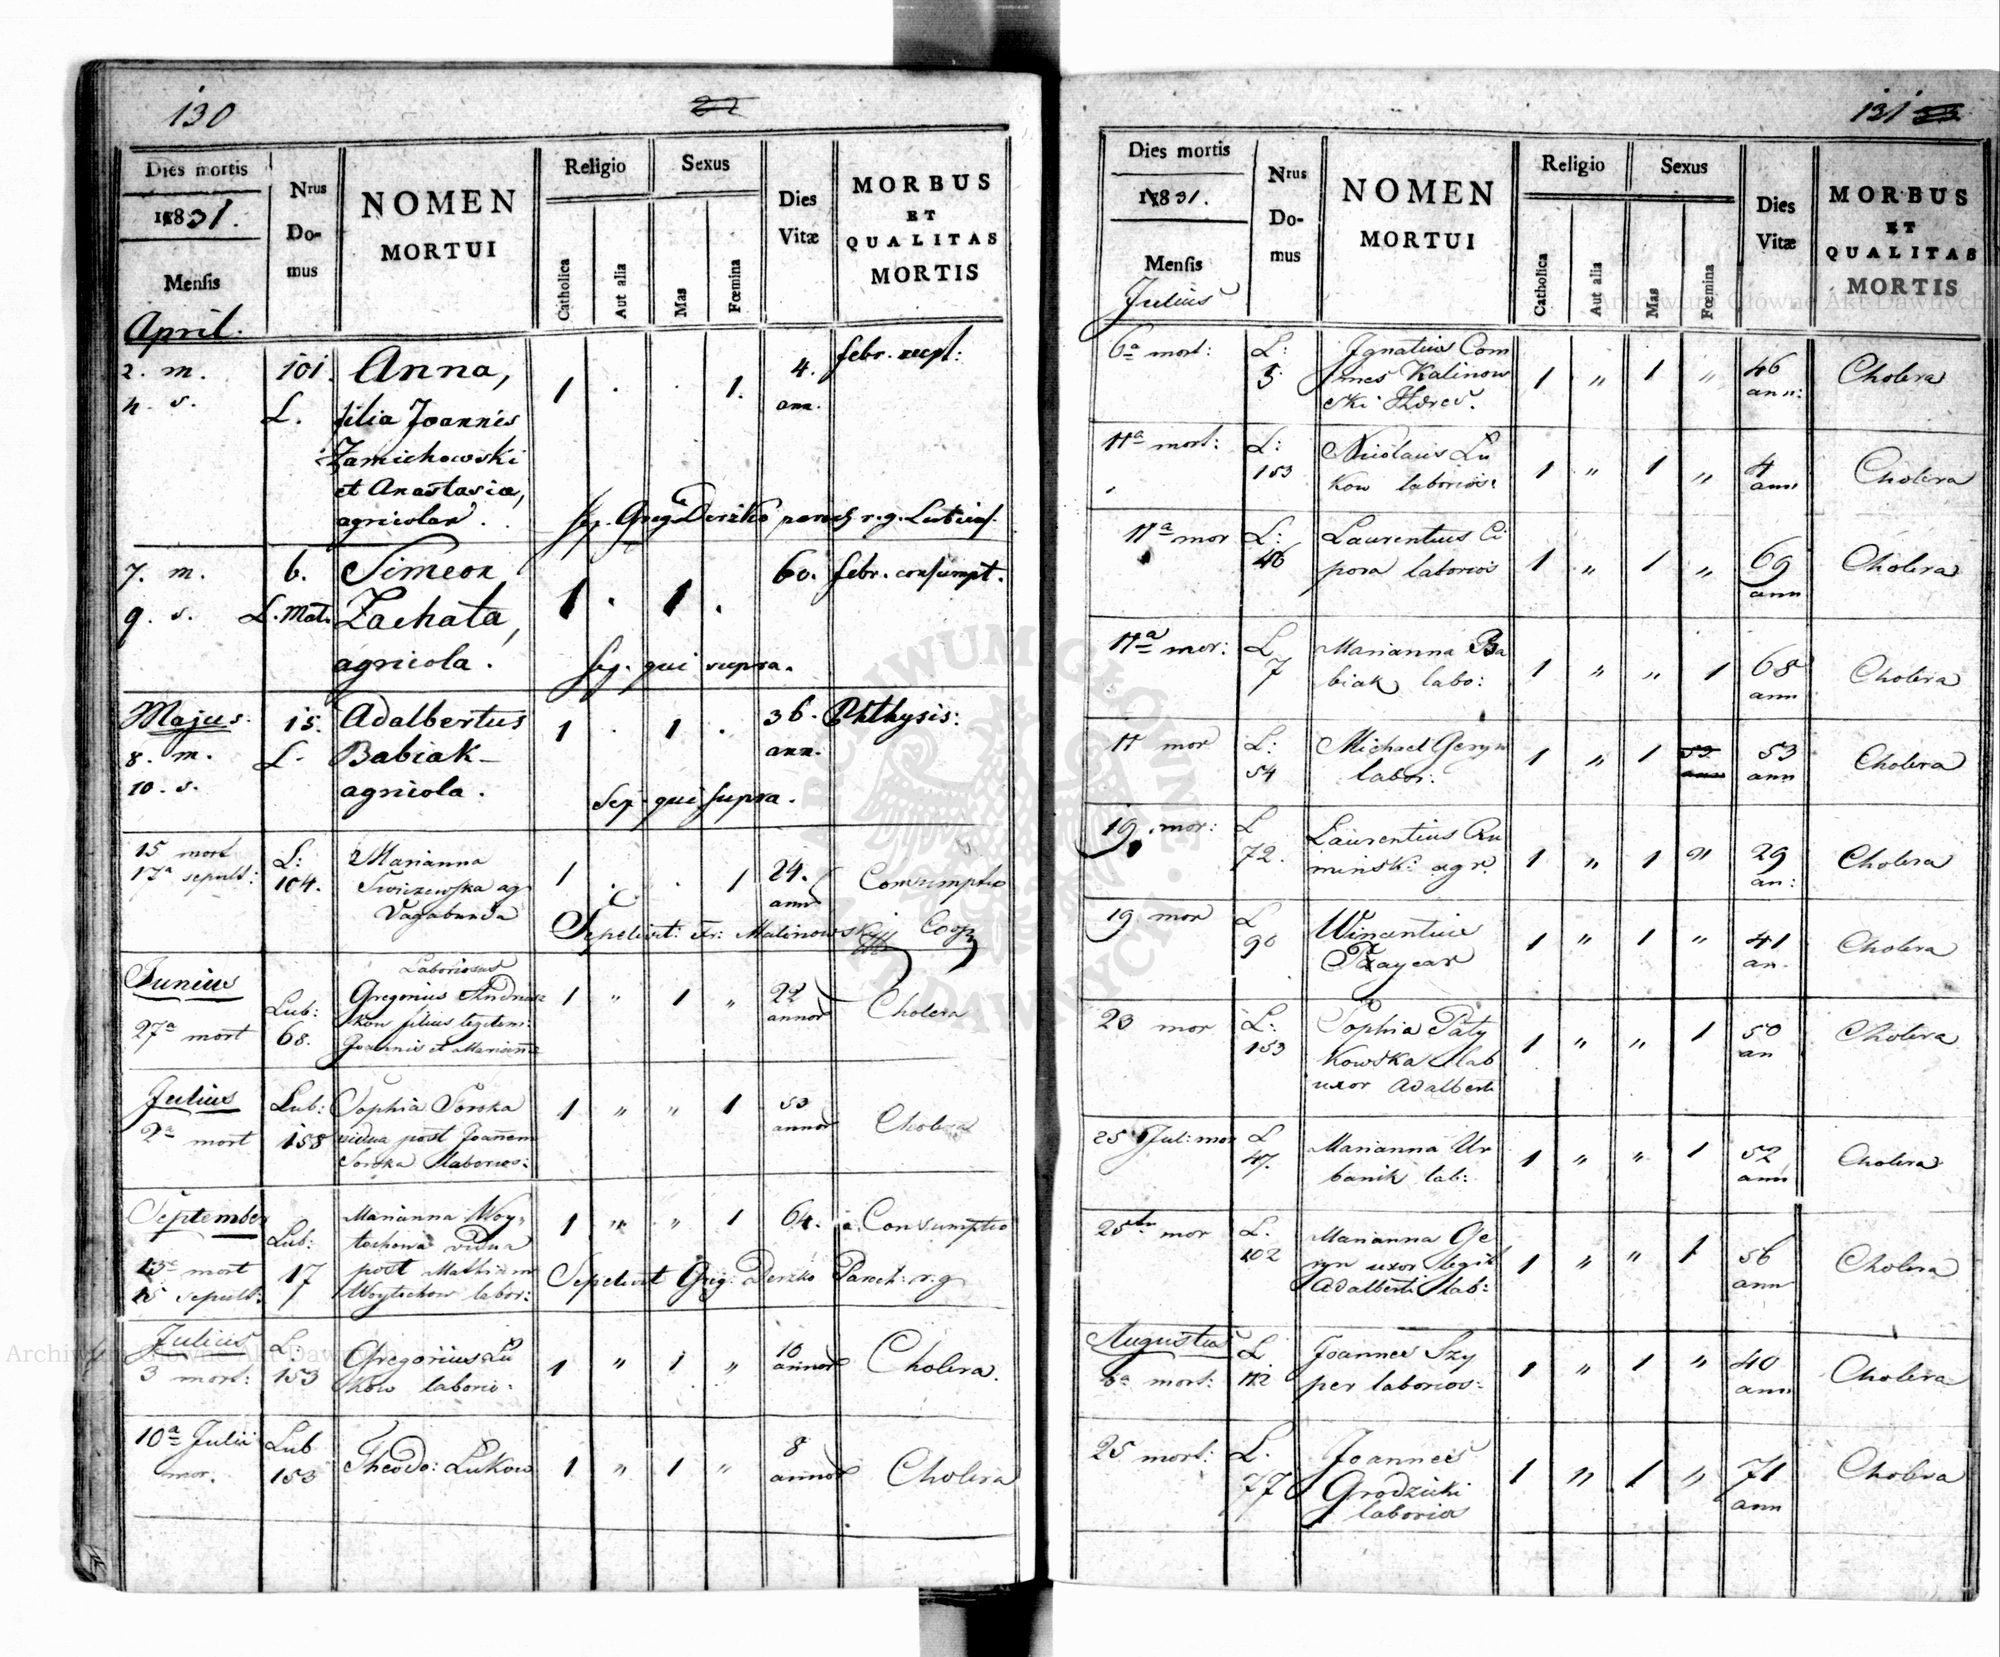 130
Dies mortis
1831.
Mensis
Nrus
Do-
mus
NOMEN
MORTUI
Religio
Catholica
Aut alia
Sexus
Mas
Fœmina
Dies
Vitæ
MORBUS
ET
QUALITAS
MORTIS
April.
2. m. 101. Anna, 1 . . 1. 4. febr. rept:
4. s. L. filia Joannis ann.
Zamichowski
et Anastasiæ,
agricolar.
Sep. Greg Derzko paroch r. g.
7. m. 6. Simeon 1 . 1 . 60. febr. consumpt.
9. s. L. Mat. Zachata,
agricola.
Sep. qui supra.
Majus. 15. Adalbertus 1 . 1 . 36. Phthysis:
8. m. L. Babiak ann.
10. s. agricola.
Sep. qui supra.
15 mort L: Marianna 1 . . 1 24. Consumptio
17a sepult: 104. ag ann
Vagabunda
Sepelivit: Fr: Malinowski Coop
Junius Laboriosus
Lub: Gregorius Andrusz 1 " 1 " 22 Cholera
27a mort 68. kow filius legitim: annor
Joannis et Mariannæ
Julius Lub: Sophia Soroka 1 " " 1 53 Cholera
2a mort 158 vidua post Joannem annor
Soroka laborios:
September Marianna Woy, 1 " " 1 64. a Consumptio
Lub: tochowa vidua
13a mort 17 post Mathiam Sepelivit Greg: Derzko Paroch: r. g
15 sepult: Woytichow labor:
Julius L. Gregorius Lu 1 " 1 " 10 Cholera.
3 mort: 153 kow laborio: annor
10a Julii Lub Theodo: Lukow 1 " 1 " 8 Cholera
mor. 153 annor
131
Dies mortis
1831.
Mensis
Nrus
Do-
mus
NOMEN
MORTUI
Religio
Catholica
Aut alia
Sexus
Mas
Fœmina
Dies
Vitæ
MORBUS
ET
QUALITAS
MORTIS
Julius
6a mort: L: Ignatius Com 1 " 1 " 46 Cholera
5 mes Kalinow ann:
ski Hæres.
11a mort: L: Nicolaus Lu 1 " 1 " 4 Cholera
153 kow laborios: ann
11a mor L: Laurentius Ci 1 " 1 " 69 Cholera
46 pora laborios ann
11a mor: L Marianna Ba 1 " " 1 68 Cholera
7 biak labo: ann
11 mor L: Michael Geryn 1 " 1 53 Cholera
54 labor: ann
19. mor: L Laurentius Ru 1 " 1 " 29 Cholera
72. minski agr. an:
19 mor L Winantius 1 " 1 " 41 Cholera
90 an.
23 mor L: Sophia Paty 1 " " 1 50 Cholera
153 kowska lab an
uxor Adalberti
25 Jul: mor L Marianna Ur 1 " " 1 52 Cholera
47. banik lab: ann
25 mor L. Marianna Ge 1 " " 1 56 Cholera
102 ryn uxor legit ann
Adalberti lab:
Augustus L Joannes Szy 1 " 1 " 40 Cholera
mort: 112 per laborios: ann
25 mort: L. Joannes 1 " 1 " 71 Cholera
77 Grodzicki ann
laborios
Archiwum Główne Akt Dawnych
ARCHIWUM GŁÓWNE AKT DAWNYCH
Archiwum Główne Akt Dawnych